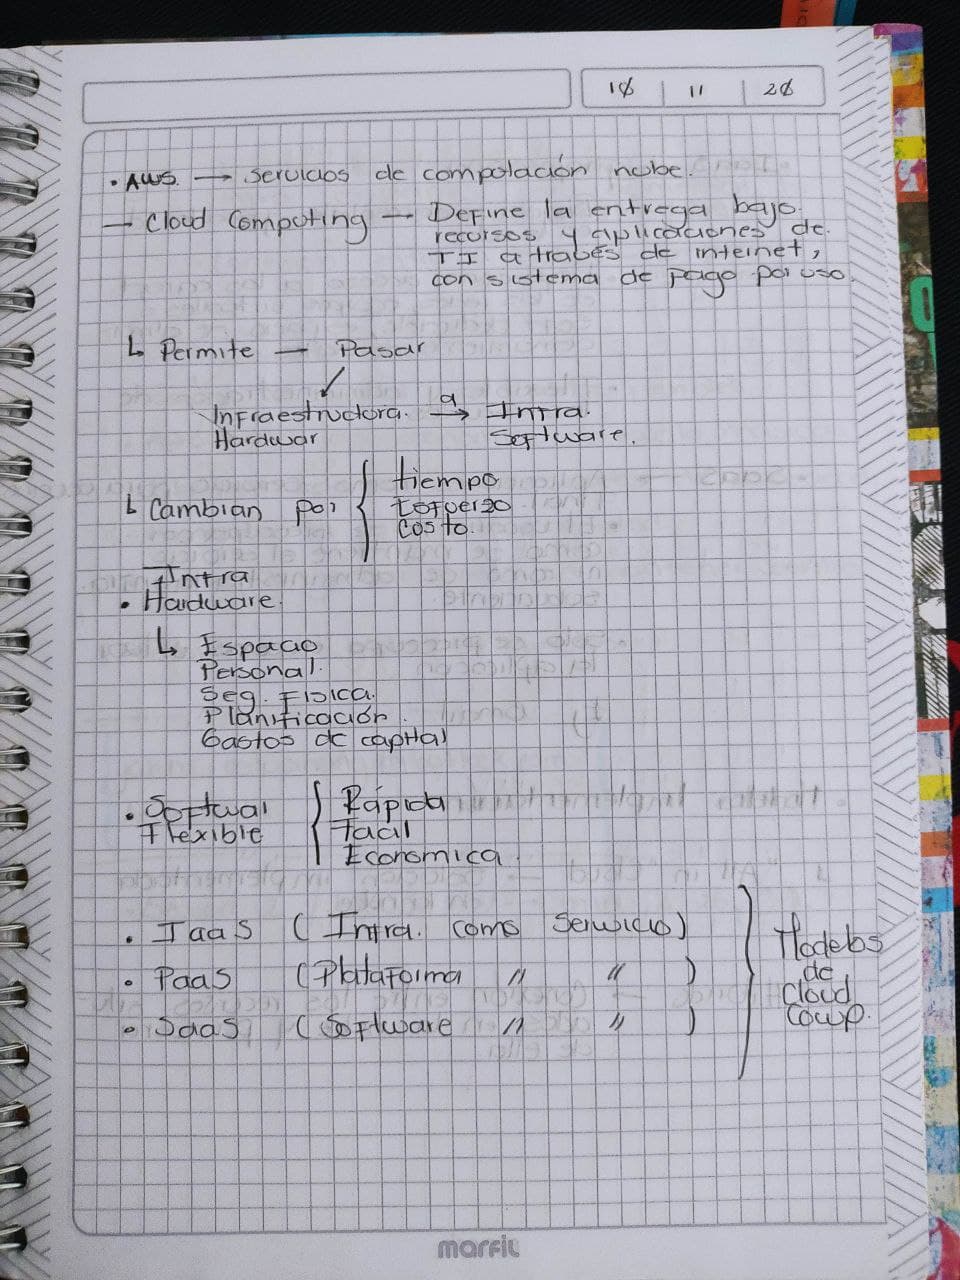 10 | 11 | 20
• AWS. → Servicios de computación nube.
— Cloud Computing — Define la entrega bajo
recursos y aplicaciones de
TI a través de internet,
con sistema de pago por uso.
↳ Permite — Pasar
Infraestructura. a → Infra.
Hardwar Software.
↳ Cambian por { tiempo
Esfuerzo
Costo.
Infra
• Hardware.
↳ Espacio
Personal.
Seg. Física.
Planificación.
Gastos de capital
• Softwar { Rápida
Flexible Facil
Economica.
• IaaS ( Infra. como Servicio)
• PaaS (Plataforma " " )
• SaaS (Software " " )
} Modelos
de
Cloud
Comp.
marfil